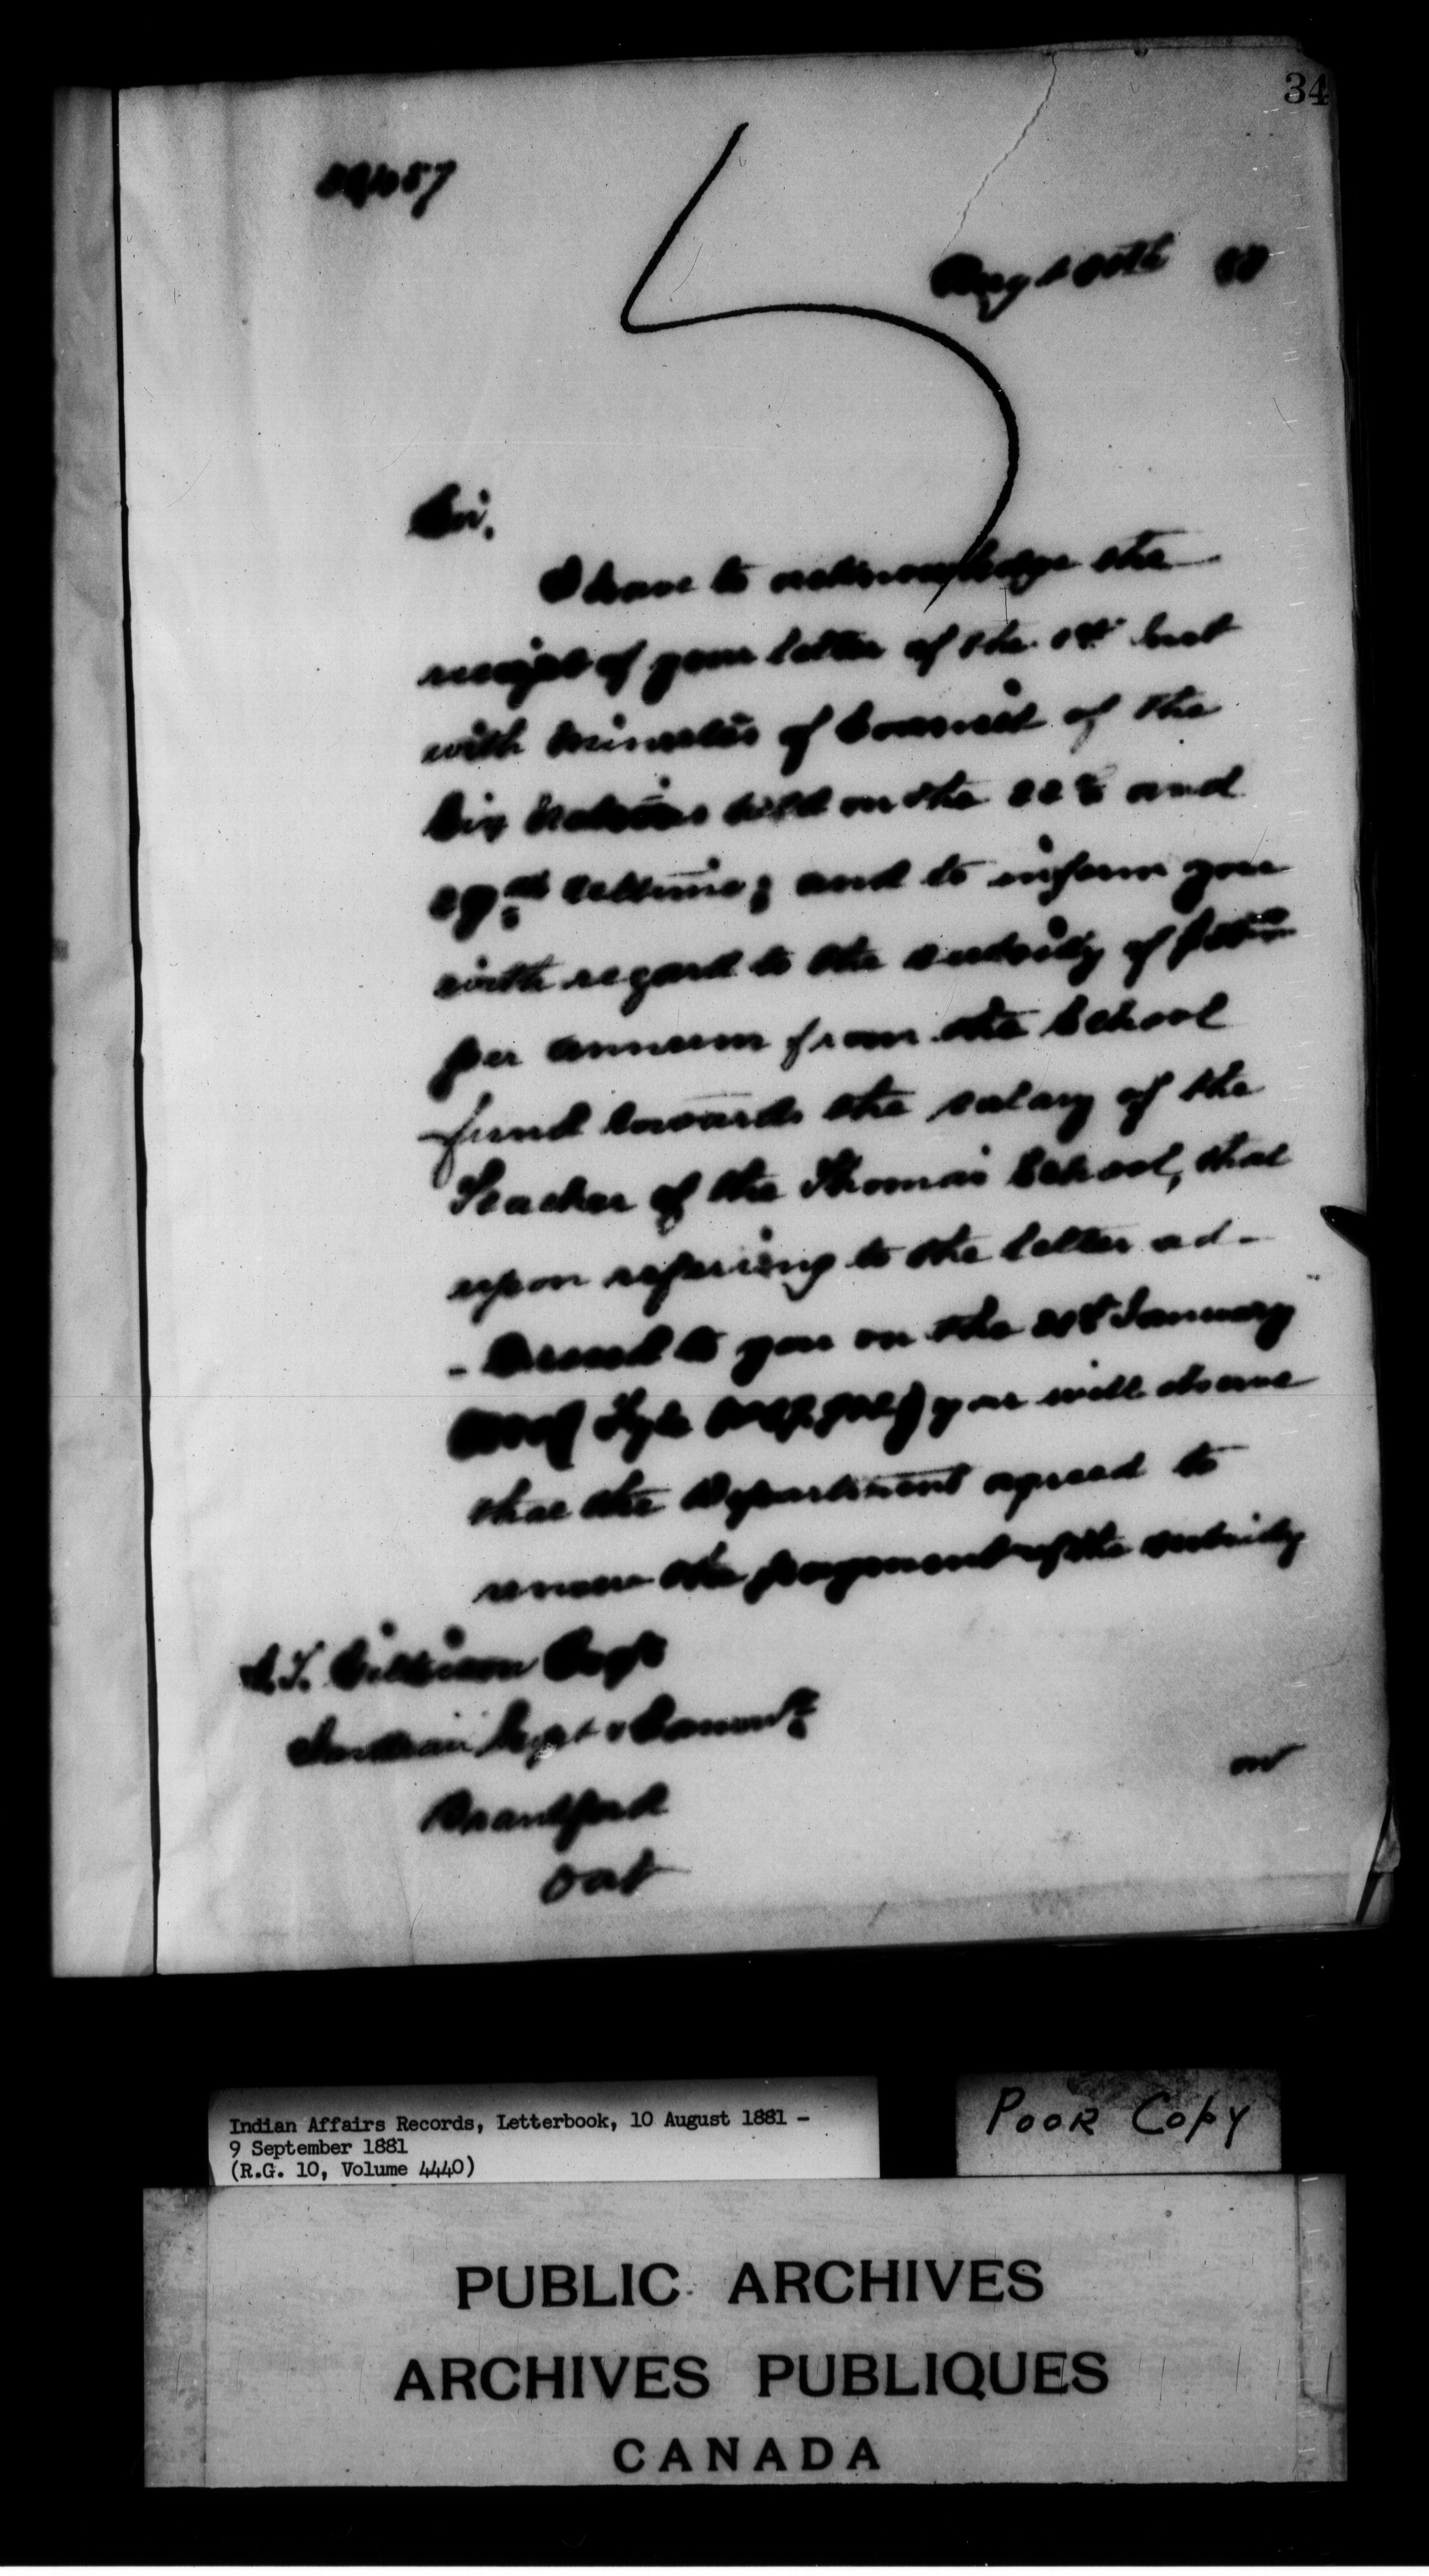 34
Augt 10th 81
Sir,
I have to acknowledge the
receipt of your letter of the 1st Inst
with minutes of Council of the
Six Nations held on the 22d and
29th ultimo; and to inform you
with regard to the subsidy of
per annum from the School
fund towards the salary of the
Teacher of the Thomas School, that
upon refering to the letter ad-
- dressed to you on the January
you will observe
that the Department agreed to
renew the payment of the subsidy
J.T. Gilkison Esqr
Indian Supt & Commr
Brantford
Ont
on
Indian Affairs Records, Letterbook, 10 August 1881 -
9 September 1881
(R.G. 10, Volume 4440)
POOR COPY
PUBLIC ARCHIVES
ARCHIVES PUBLIQUES
CANADA